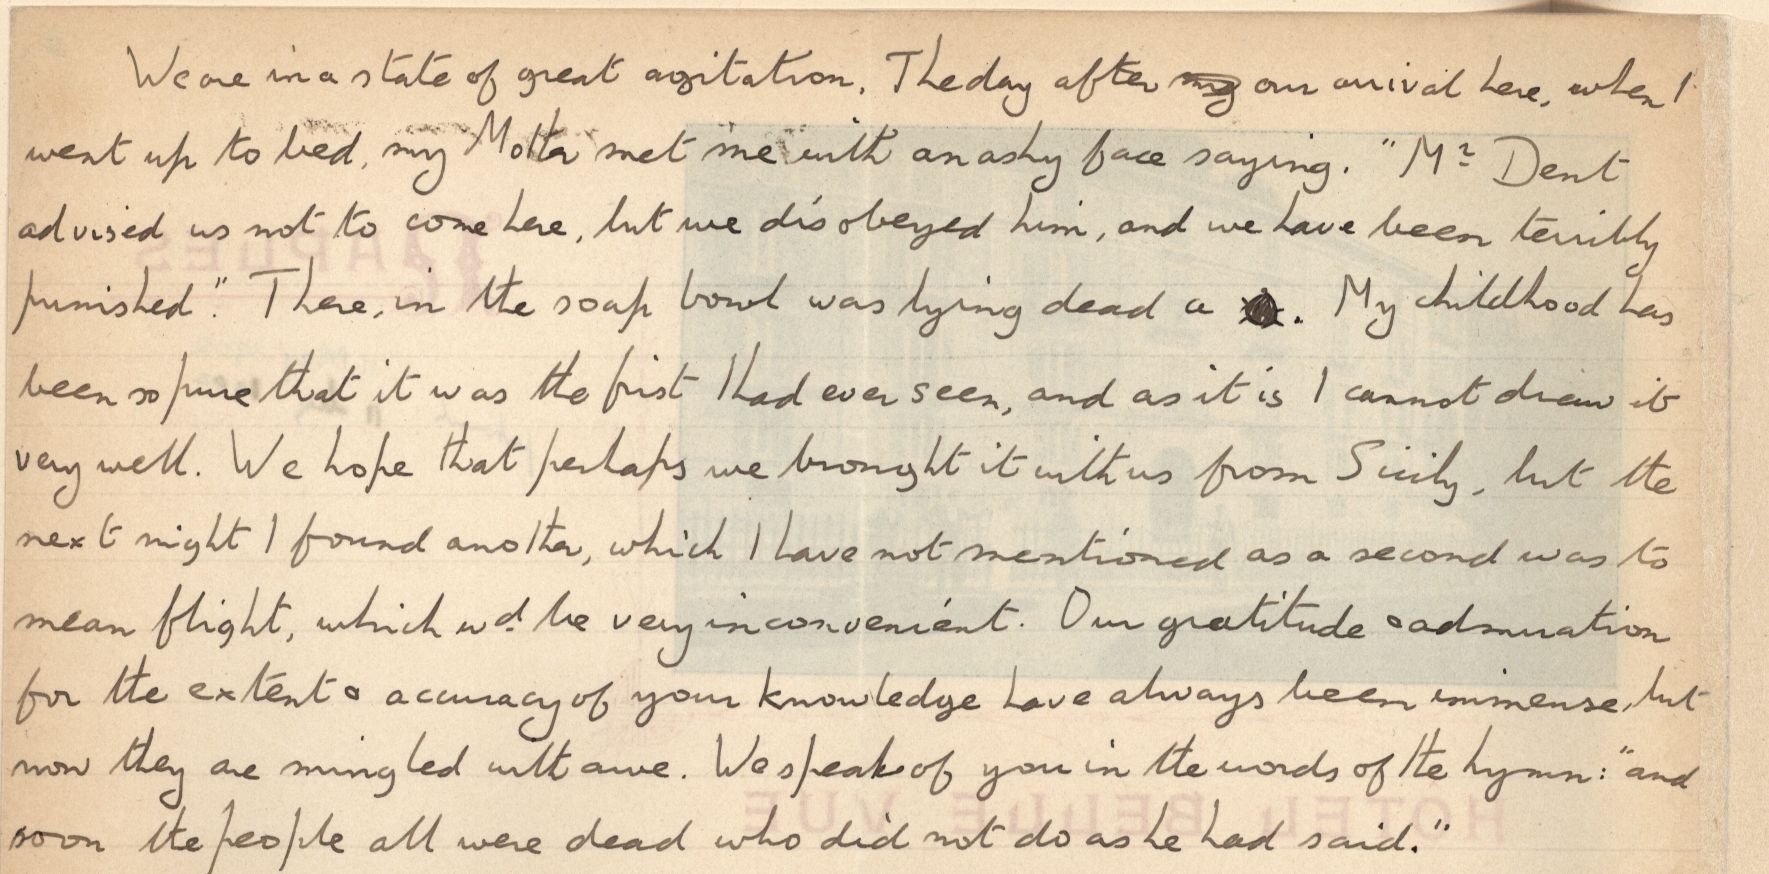 We are in a state of great agitation. The day after our arrival here, when I
went up to bed, my Motta met me with an ashy face saying. "Mr Dent
advised us not to come here, but we disobeyed him, and we have been terribly
punished". There, in the soap bowl was lying dead a . My childhood has
been so pure that it was the first I had ever seen, and as it is I cannot draw it
very well. We hope that perhaps we brought it with us from Sicily, but the
next night I found another, which I have not mentioned as a second was to
mean flight, which wd be very inconvenient. Our gratitude & admiration
for the extent & accuracy of your knowledge have always been immense, but
now they are mingled with awe. We speak of you in the words of the hymn: "and
soon the people all were dead who did not do as he had said."
HOTEL BELLE VUE